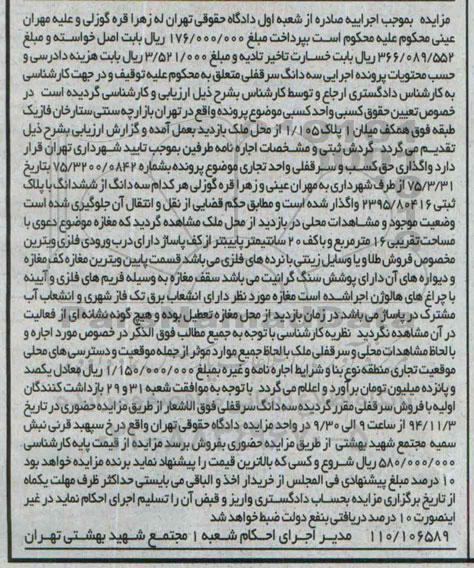 مزایده بموجب اجراییه صادره از شعبه اول دادگاه حقوقی تهران له زهرا قره گوزلی و علیه مهران
عینی محکوم علیه محکوم است بپرداخت مبلغ ۱۷۶/۰۰۰/۰۰۰ ریال بابت اصل خواسته و مبلغ
۳۶۶/۰۸۹/۵۵۲ ریال بابت خسارت تاخیر تادیه و مبلغ ۳/۵۲۱/۰۰۰ ریال بابت هزینه دادرسی و
حسب محتویات پرونده اجرایی سه دانگ سرقفلی متعلق به محکوم علیه توقیف و در جهت کارشناسی
به کارشناس دادگستری ارجاع و توسط کارشناس بشرح ذیل ارزیابی و کارشناسی گردیده است در
خصوص تعیین حقوق کسبی واحد کسبی موضوع پرونده واقع در تهران بازارچه سنتی ستارخان فازیک
طبقه فوق همکف میلان ۱ پلاک ۱/۱۰۵ از محل ملک بازدید بعمل آمده و گزارش ارزیابی بشرح ذیل
تقدیم می گردد گردش ثبتی و مشخصات اجاره نامه طرفین بموجب تایید شهرداری تهران قرار
دارد واگذاری حق کسب و سرقفلی واحد تجاری موضوع پرونده بشماره ۷۵/۳۲۰۰/۰۸۴۲ بتاریخ
۷۵/۳/۳۱ از طرف شهرداری به مهران عینی و زهرا قره گوزلی هر کدام سه دانگ از ششدانگ با پلاک
ثبتی ۲۳۹۵/۸۰۴۱۶ واگذار شده است و مطابق حکم قضایی از نقل و انتقال آن جلوگیری شده است
وضعیت موجود و مشاهدات محلی در بازدید از محل ملک مشاهده گردید که مغازه موضوع دعوی با
مساحت تقریبی ۱۶ مترمربع و با کف ۲۰ سانتیمتر پایینتر از کف پاساژ دارای درب ورودی فلزی ویترین
مخصوص فروش طلا و یا وسایل زینتی با نرده های فلزی می باشد قسمت پایین ویترین مغازه کف مغازه
و دیواره های آن دارای پوشش سنگ گرانیت می باشد سقف مغازه به وسیله فریم های فلزی و آیینه
با چراغ های هالوژن اجرا شده است مغازه مورد نظر دارای انشعاب برق تک فاز شهری و انشعاب آب
مشترک در پاساژ می باشد در زمان بازدید از محل مغازه تعطیل بوده و هیچ گونه نشانه ای از فعالیت
در آن مشاهده نگردید نظریه کارشناسی با توجه به جمیع مطالب فوق الذکر در خصوص مورد اجاره و
با لحاظ مشاهدات محلی و سرقفلی ملک با لحاظ جمیع موارد موثر از جمله موقعیت و دسترسی های محلی
موقعیت تجاری منطقه نوع بنا و شرایط اجاره نامه و غیره بمبلغ ۱/۱۵۰/۰۰۰/۰۰۰ ریال معادل یکصد
و پانزده میلیون تومان برآورد و اعلام می گردد با توجه به موافقت شعبه ۳۱ و ۲۹ بازداشت کنندگان
اولیه با فروش سرقفلی مقرر گردیده سه دانگ سرقفلی فوق الاشعار از طریق مزایده حضوری در تاریخ
۹۴/۱۱/۳ از ساعت ۹ الی ۹/۳۰ در واحد مزایده دادگاه حقوقی تهران واقع در خ سپهبد قرنی نبش
سمیه مجتمع شهید بهشتی از طریق مزایده حضوری بفروش برسد مزایده از قیمت پایه کارشناسی
۵۸۰/۰۰۰/۰۰۰ ریال شروع و کسی که بالاترین قیمت را پیشنهاد نماید برنده مزایده خواهد بود
۱۰ درصد مبلغ پیشنهادی فی المجلس از خریدار اخذ و الباقی می بایستی حداکثر ظرف مهلت یکماه
از تاریخ برگزاری مزایده بحساب دادگستری واریز و قبض آن را تسلیم اجرای احکام نماید در غیر
اینصورت ۱۰ درصد دریافتی بنفع دولت ضبط خواهد شد
۱۱۰/۱۰۶۵۸۹ مدیر اجرای احکام شعبه ۱ مجتمع شهید بهشتی تهران